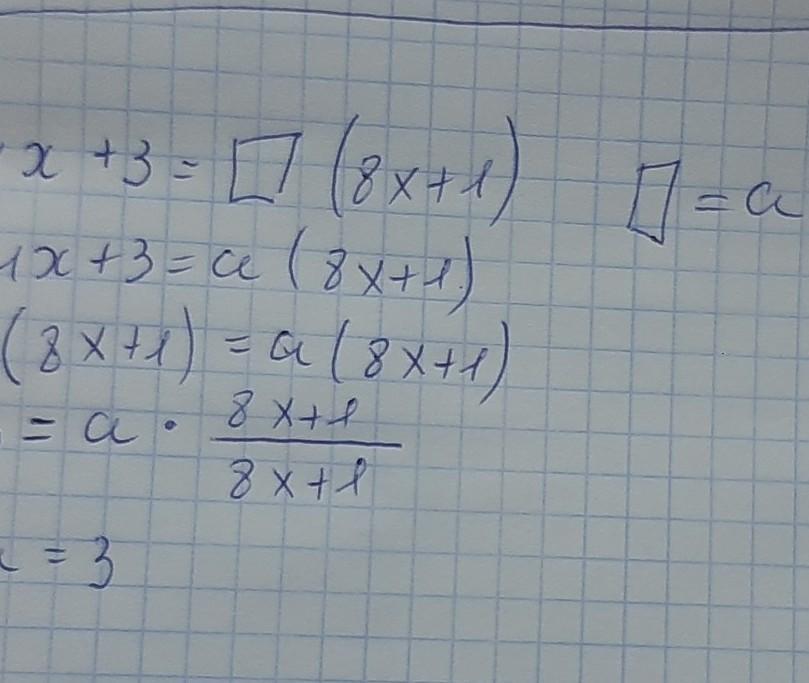 x + 3 = □ (8x+1)   □ = a
x + 3 = a (8x+1)
(8x+1) = a (8x+1)
= a · \frac{8x+1}{8x+1}
= 3